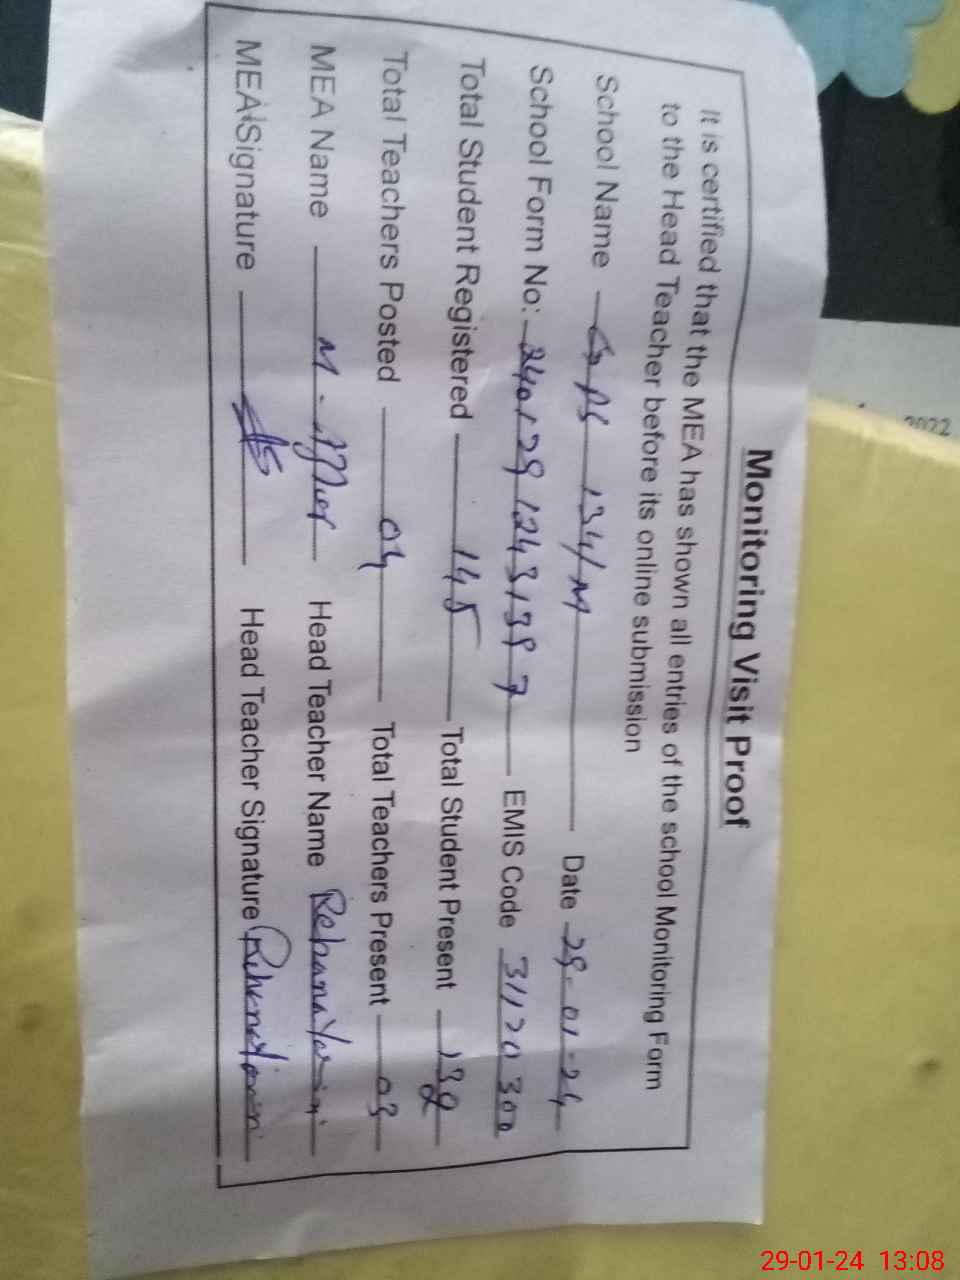 Monitoring Visit Proof
It is certified that the MEA has shown all entries of the school Monitoring Form
to the Head Teacher before its online submission
School Name GPS 134/M Date 29-01-24
School Form No: 240129124313 97 EMIS Code 31120300
Total Student Registered 145 Total Student Present 132
Total Teachers Posted 04 Total Teachers Present 03
MEA Name M. Head Teacher Name Rehana Yasmin
MEA Signature Head Teacher Signature Rehana Yasmin
2022
29-01-24 13:08